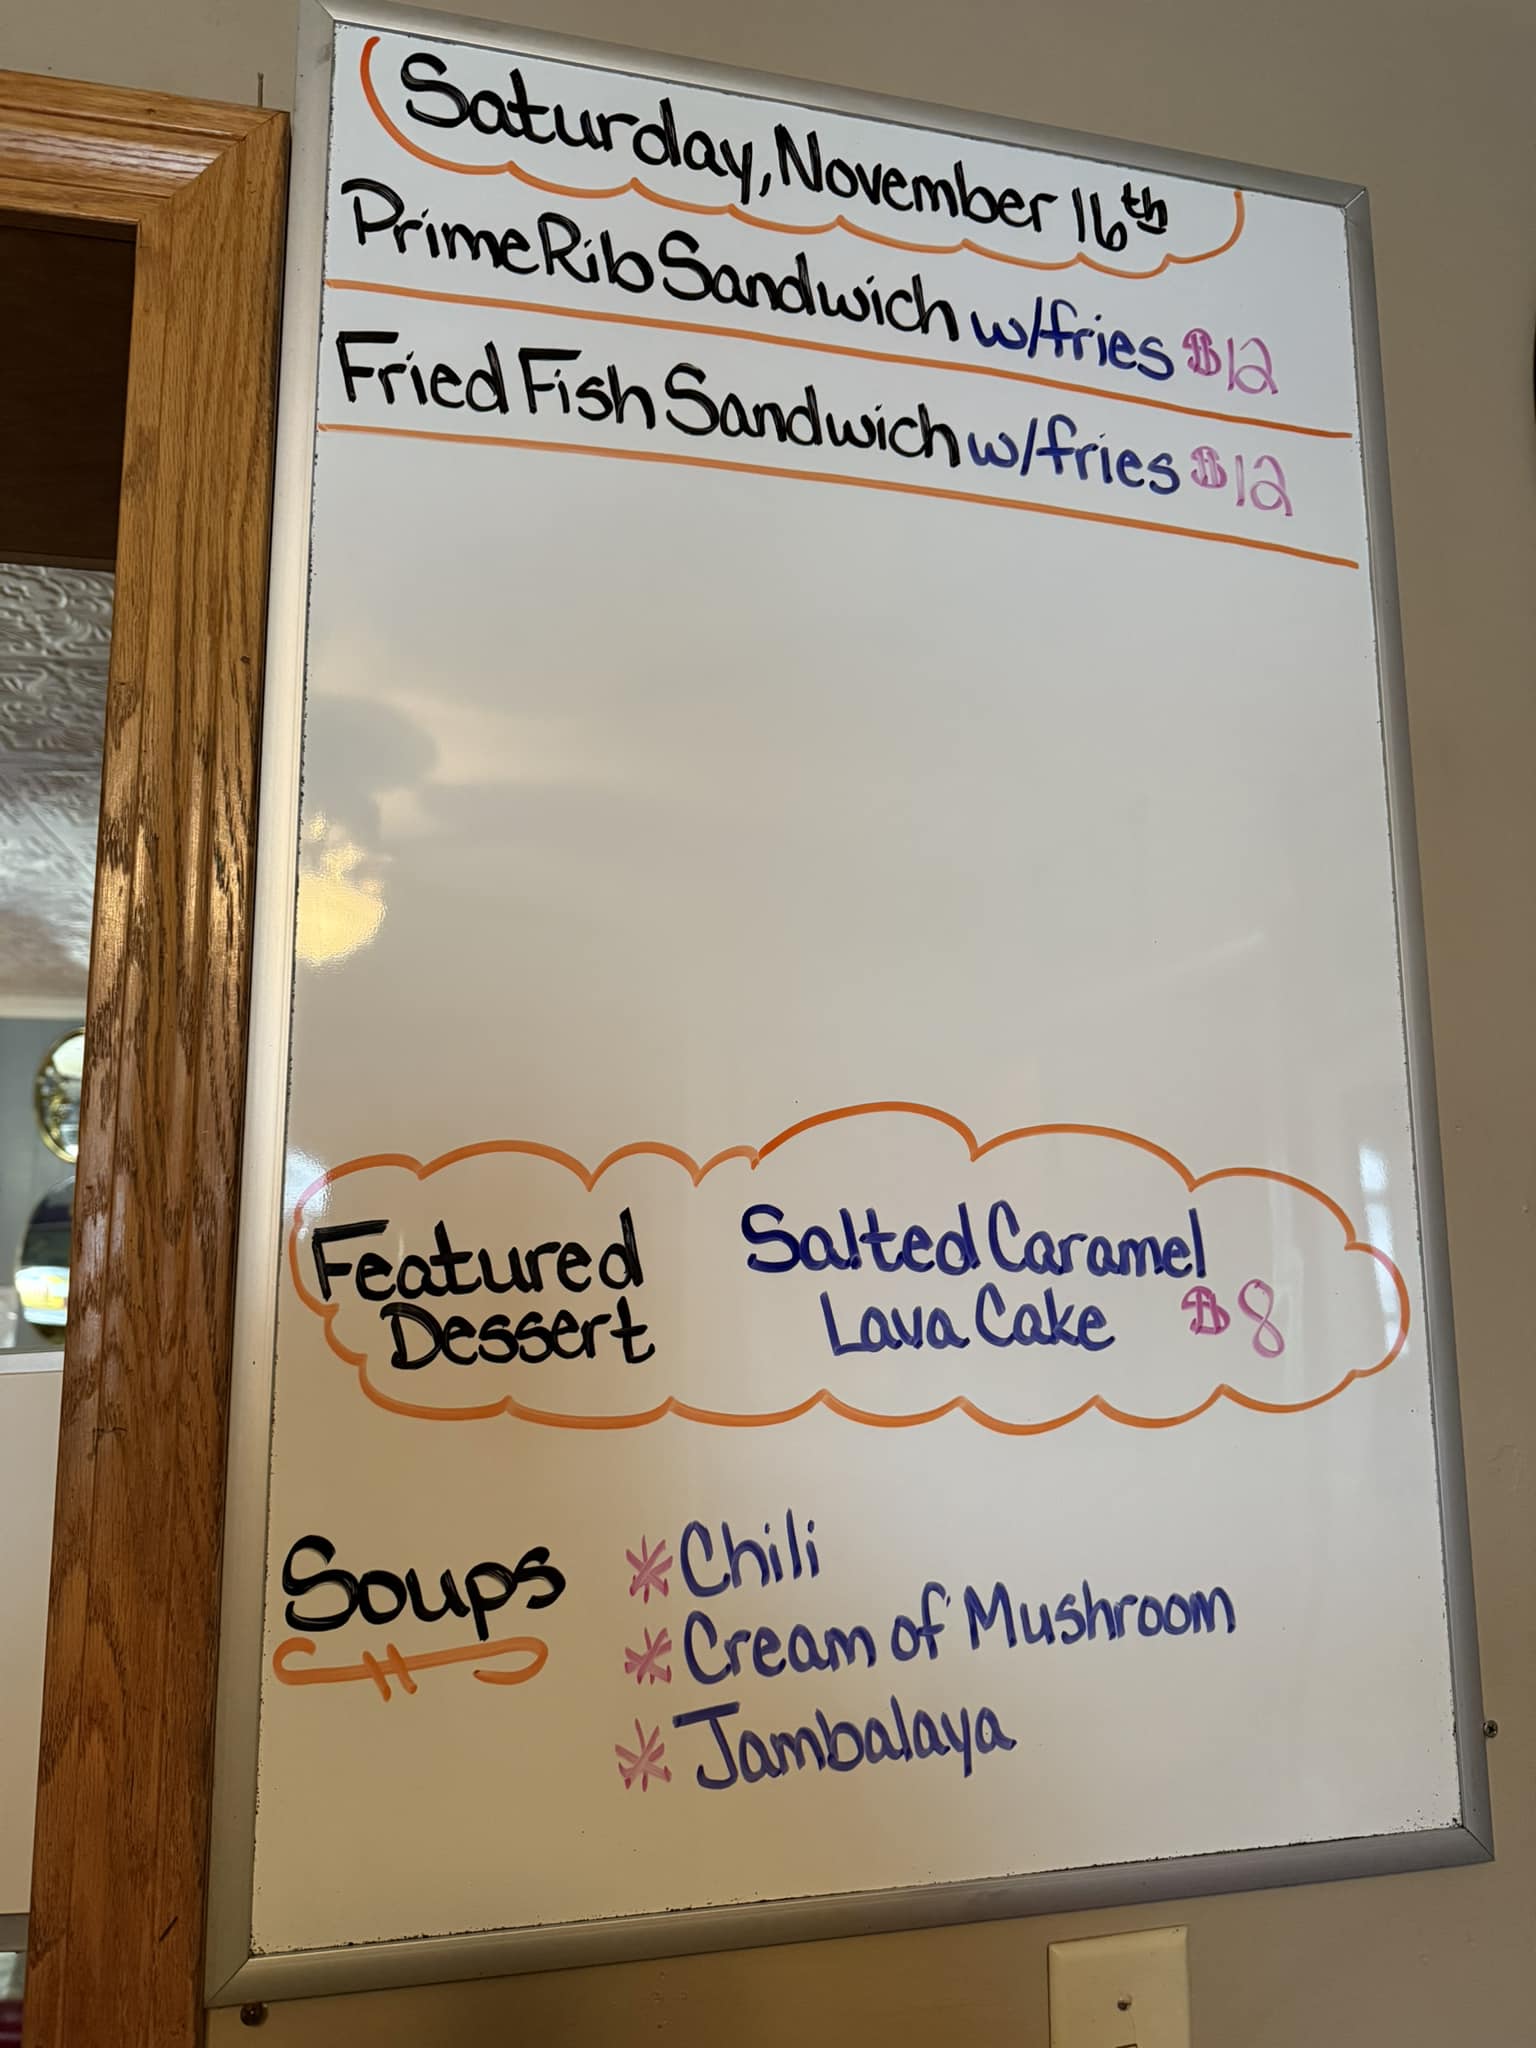 Saturday, November 16th
Prime Rib Sandwich w/fries $12
Fried Fish Sandwich w/fries $12
Featured
Dessert
Salted Caramel
Lava Cake $8
Soups
* Chili
* Cream of Mushroom
* Jambalaya